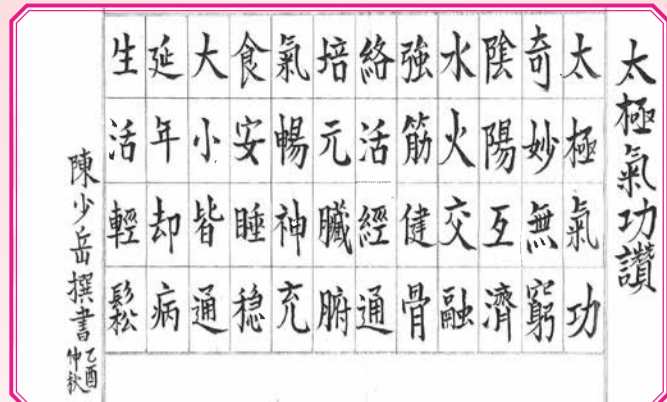 太極氣功讚
太極氣功
奇妙無窮
陰陽互濟
水火交融
強筋健骨
絡活經通
培元臟腑
氣暢神充
食安睡穩
大小皆通
延年却病
生活輕鬆
陳少岳撰書
乙酉
仲秋